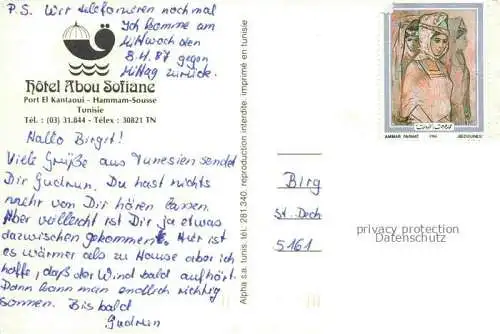 P.S. Wir telefonieren nochmal
Ich komme am
Mittwoch den
8.4.87 gegen
Mittag zurück.
Hôtel Abou Sofiane
Port El Kantaoui - Hammam-Sousse
Tunisie
Tél. : (03) 31.844 - Télex : 30821 TN
Hallo Birgit!
Viele Grüße aus Tunesien sendet
Dir Gudrun. Du hast nichts
mehr von Dir hören lassen.
Aber vielleicht ist Dir ja etwas
dazwischen gekommen. Hier ist
es wärmer als zu Hause aber ich
hoffe, daß der Wind bald aufhört.
Dann kann man endlich richtig
sonnen. Bis bald
Gudrun
Alpha s.a. tunis. tél: 281.340. reproduction interdite. imprimé en tunisie
AMMAR FARHAT 1986
Birg
St. Dech
5161
privacy protection
Datenschutz